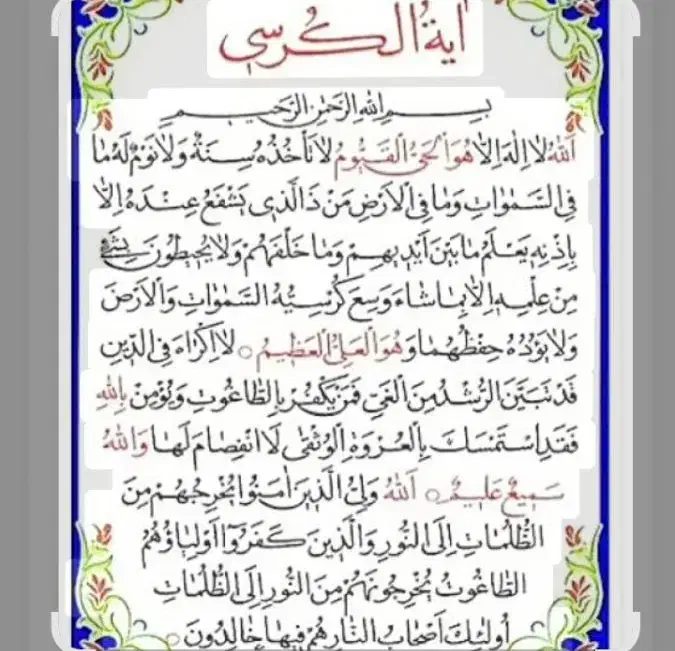 اٰيَةُ الْكُرْسِي
بِسْمِ اللّٰهِ الرَّحْمٰنِ الرَّحِيمِ
اَللّٰهُ لَا اِلٰهَ اِلَّا هُوَ الْحَيُّ الْقَيُّومُ لَا تَأْخُذُهُ سِنَةٌ وَلَا نَوْمٌ لَهُ مَا
فِي السَّمٰوَاتِ وَمَا فِي الْاَرْضِ مَنْ ذَا الَّذِي يَشْفَعُ عِنْدَهُ اِلَّا
بِاِذْنِهِ يَعْلَمُ مَا بَيْنَ اَيْدِيهِمْ وَمَا خَلْفَهُمْ وَلَا يُحِيطُونَ بِشَيْءٍ
مِنْ عِلْمِهِ اِلَّا بِمَا شَاءَ وَسِعَ كُرْسِيُّهُ السَّمٰوَاتِ وَالْاَرْضَ
وَلَا يَؤُدُهُ حِفْظُهُمَا وَهُوَ الْعَلِيُّ الْعَظِيمُ ○ لَا اِكْرَاهَ فِي الدِّينِ
قَدْ تَبَيَّنَ الرُّشْدُ مِنَ الْغَيِّ فَمَنْ يَكْفُرْ بِالطَّاغُوتِ وَيُؤْمِنْ بِاللّٰهِ
فَقَدِ اسْتَمْسَكَ بِالْعُرْوَةِ الْوُثْقٰى لَا انْفِصَامَ لَهَا وَاللّٰهُ
سَمِيعٌ عَلِيمٌ ○ اَللّٰهُ وَلِيُّ الَّذِينَ اٰمَنُوا يُخْرِجُهُمْ مِنَ
الظُّلُمَاتِ اِلَى النُّورِ وَالَّذِينَ كَفَرُوا اَوْلِيَاؤُهُمُ
الطَّاغُوتُ يُخْرِجُونَهُمْ مِنَ النُّورِ اِلَى الظُّلُمَاتِ
اُولٰئِكَ اَصْحَابُ النَّارِ هُمْ فِيهَا خَالِدُونَ ○